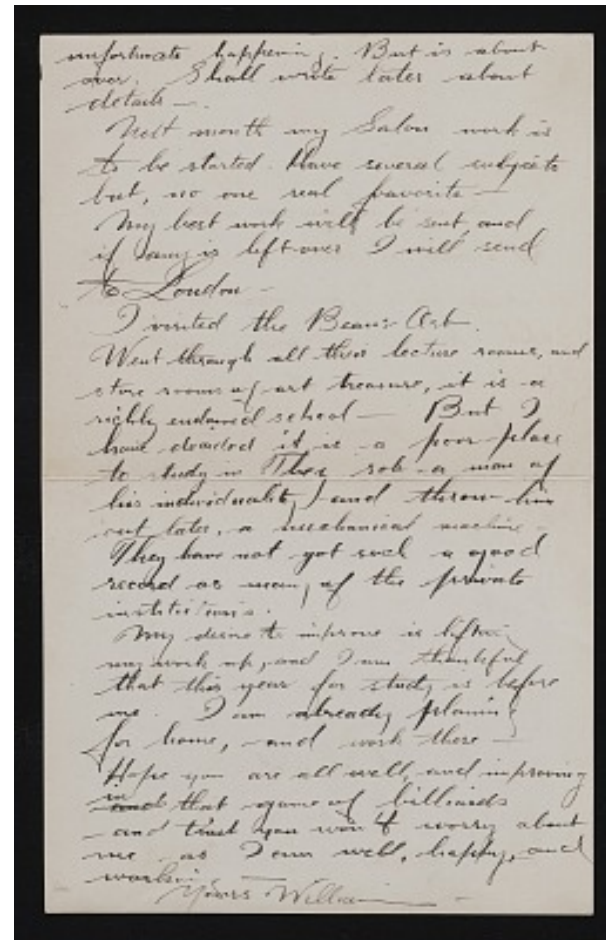 unfortunate happening. But is about
over. Shall write later about
details —.
Next month my Salon work is
to be started. Have several subjects
but, no one real favorite —
My best work will be sent, and
if any is left over I will send
to London —
I visited the Beaux Art.
Went through all their lecture rooms, and
store rooms of art treasure, it is a
richly endowed school — But I
have decided it is a poor place
to study in They rob a man of
his individuality, and throw him
out later, a mechanical machine —
They have not got such a good
record as many of the private
institutions.
My desire to improve is lifting
my work up, and I am thankful
that this year for study is before
me. I am already planing
for home, and work there —
Hope you are all well, and improving
in that game of billiards
and trust you won't worry about
me as I am well, happy, and
working.
Yours William